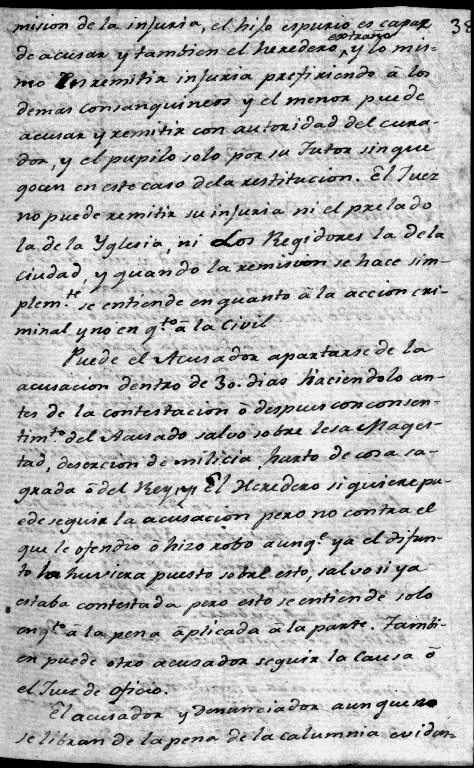 mision de la injuria, el hijo espurio es capaz 38
de acusar y tambien el heredero extraño, y lo mis-
mo en remitir injuria prefiriendo â los
demas consanguineos y el menor puede
acusar y remitir con autoridad del cura-
dor, y el pupilo solo por su Tutor sin que
gocen en este caso dela restitucion. El Juez
no puede remitir su injuria ni el prelado
la de la Yglesia, ni Los Regidores la dela
ciudad, y quando la remision se hace sim-
plem.te se entiende en quanto â la accion cri-
minal y no en q.to â la Civil
Puede el Acusador apartarse de la
acusacion dentro de 30. dias haciendolo an-
tes de la contestacion ô despues con consen-
tim.to del Acusado salvo sobre lesa Mages-
tad, desercion de milicia, hurto de cosa sa-
grada ô del Rey, y El Heredero si quiere pu-
ede seguir la acusacion pero no contra el
que le ofendio ô hizo robo aunq.e ya el difun-
to huviera puesto sobre esto, salvo si ya
estaba contestada pero esto se entiende solo
en q.to â la pena âplicada â la parte. Tambi-
en puede otro acusador seguir la causa ô
el Juez de oficio.
El acusador y Denunciador aunque no
se libran de la pena de la calumnia eviden-